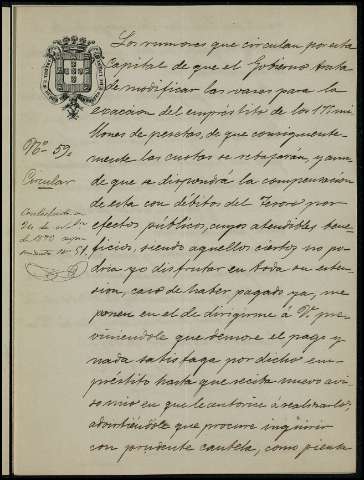 Nº 59.
Circular
Contestada en
24 de
de 1870
nº 51.
Los rumores que circulan por esta
Capital de que el Gobierno trata
de modificar las vases para la
exaccion del empréstito de los 175 mi
llones de pesetas, de que consiguiente-
mente las cuotas se rebajarán, y aun
de que se dispondrá la compensacion
de esta con débitos del Tesoro por
efectos públicos, cuyos atendibles bene-
ficios, siendo aquellos ciertos no po
dria yo disfrutar en toda su esten-
sion, caso de haber pagado ya, me
ponen en el de dirigirme á V. pre-
viniendole que demore el pago y
nada satisfaga por dicho em-
préstito hasta que reciba nuevo avi
so mio en que le autorice á realizarlo,
advirtiéndole que procure inquirir
con prudente cautela, como piensa